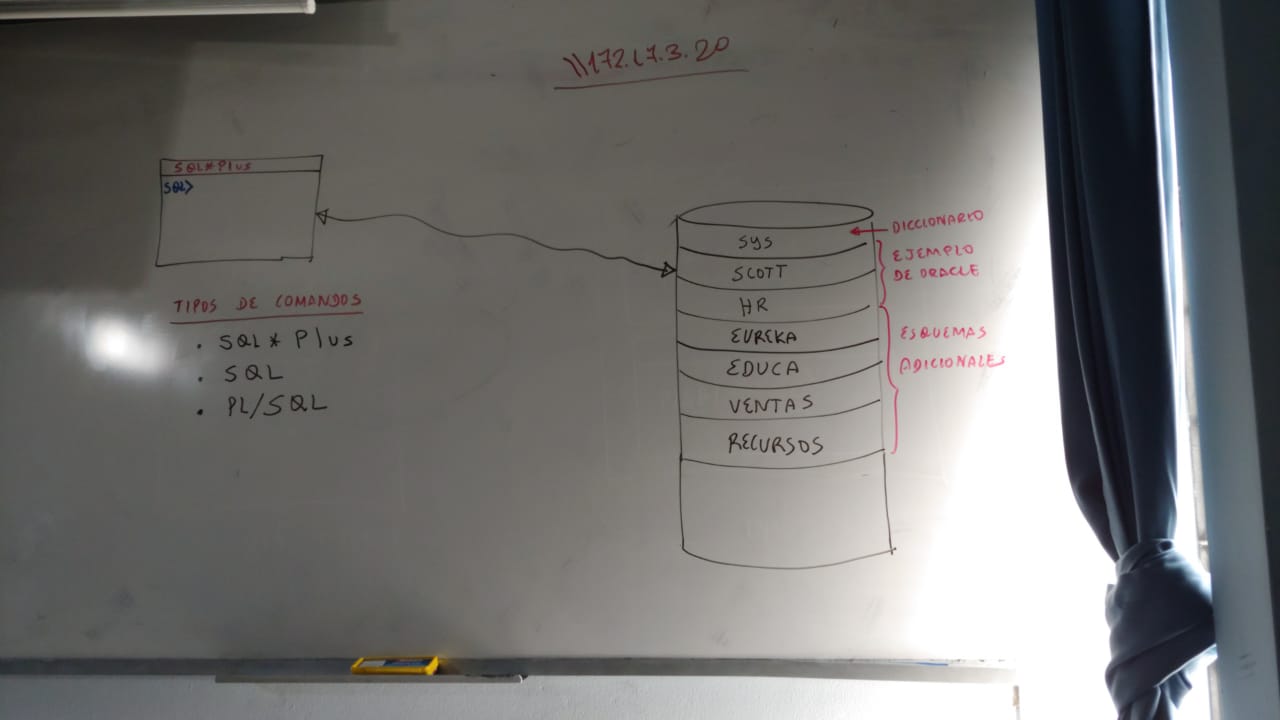 \\172.17.3.20
SQL*Plus
SQL>
TIPOS DE COMANDOS
• SQL* Plus
• SQL
• PL/SQL
SYS
SCOTT
HR
EUREKA
EDUCA
VENTAS
RECURSOS
DICCIONARIO
EJEMPLO
DE ORACLE
ESQUEMAS
ADICIONALES